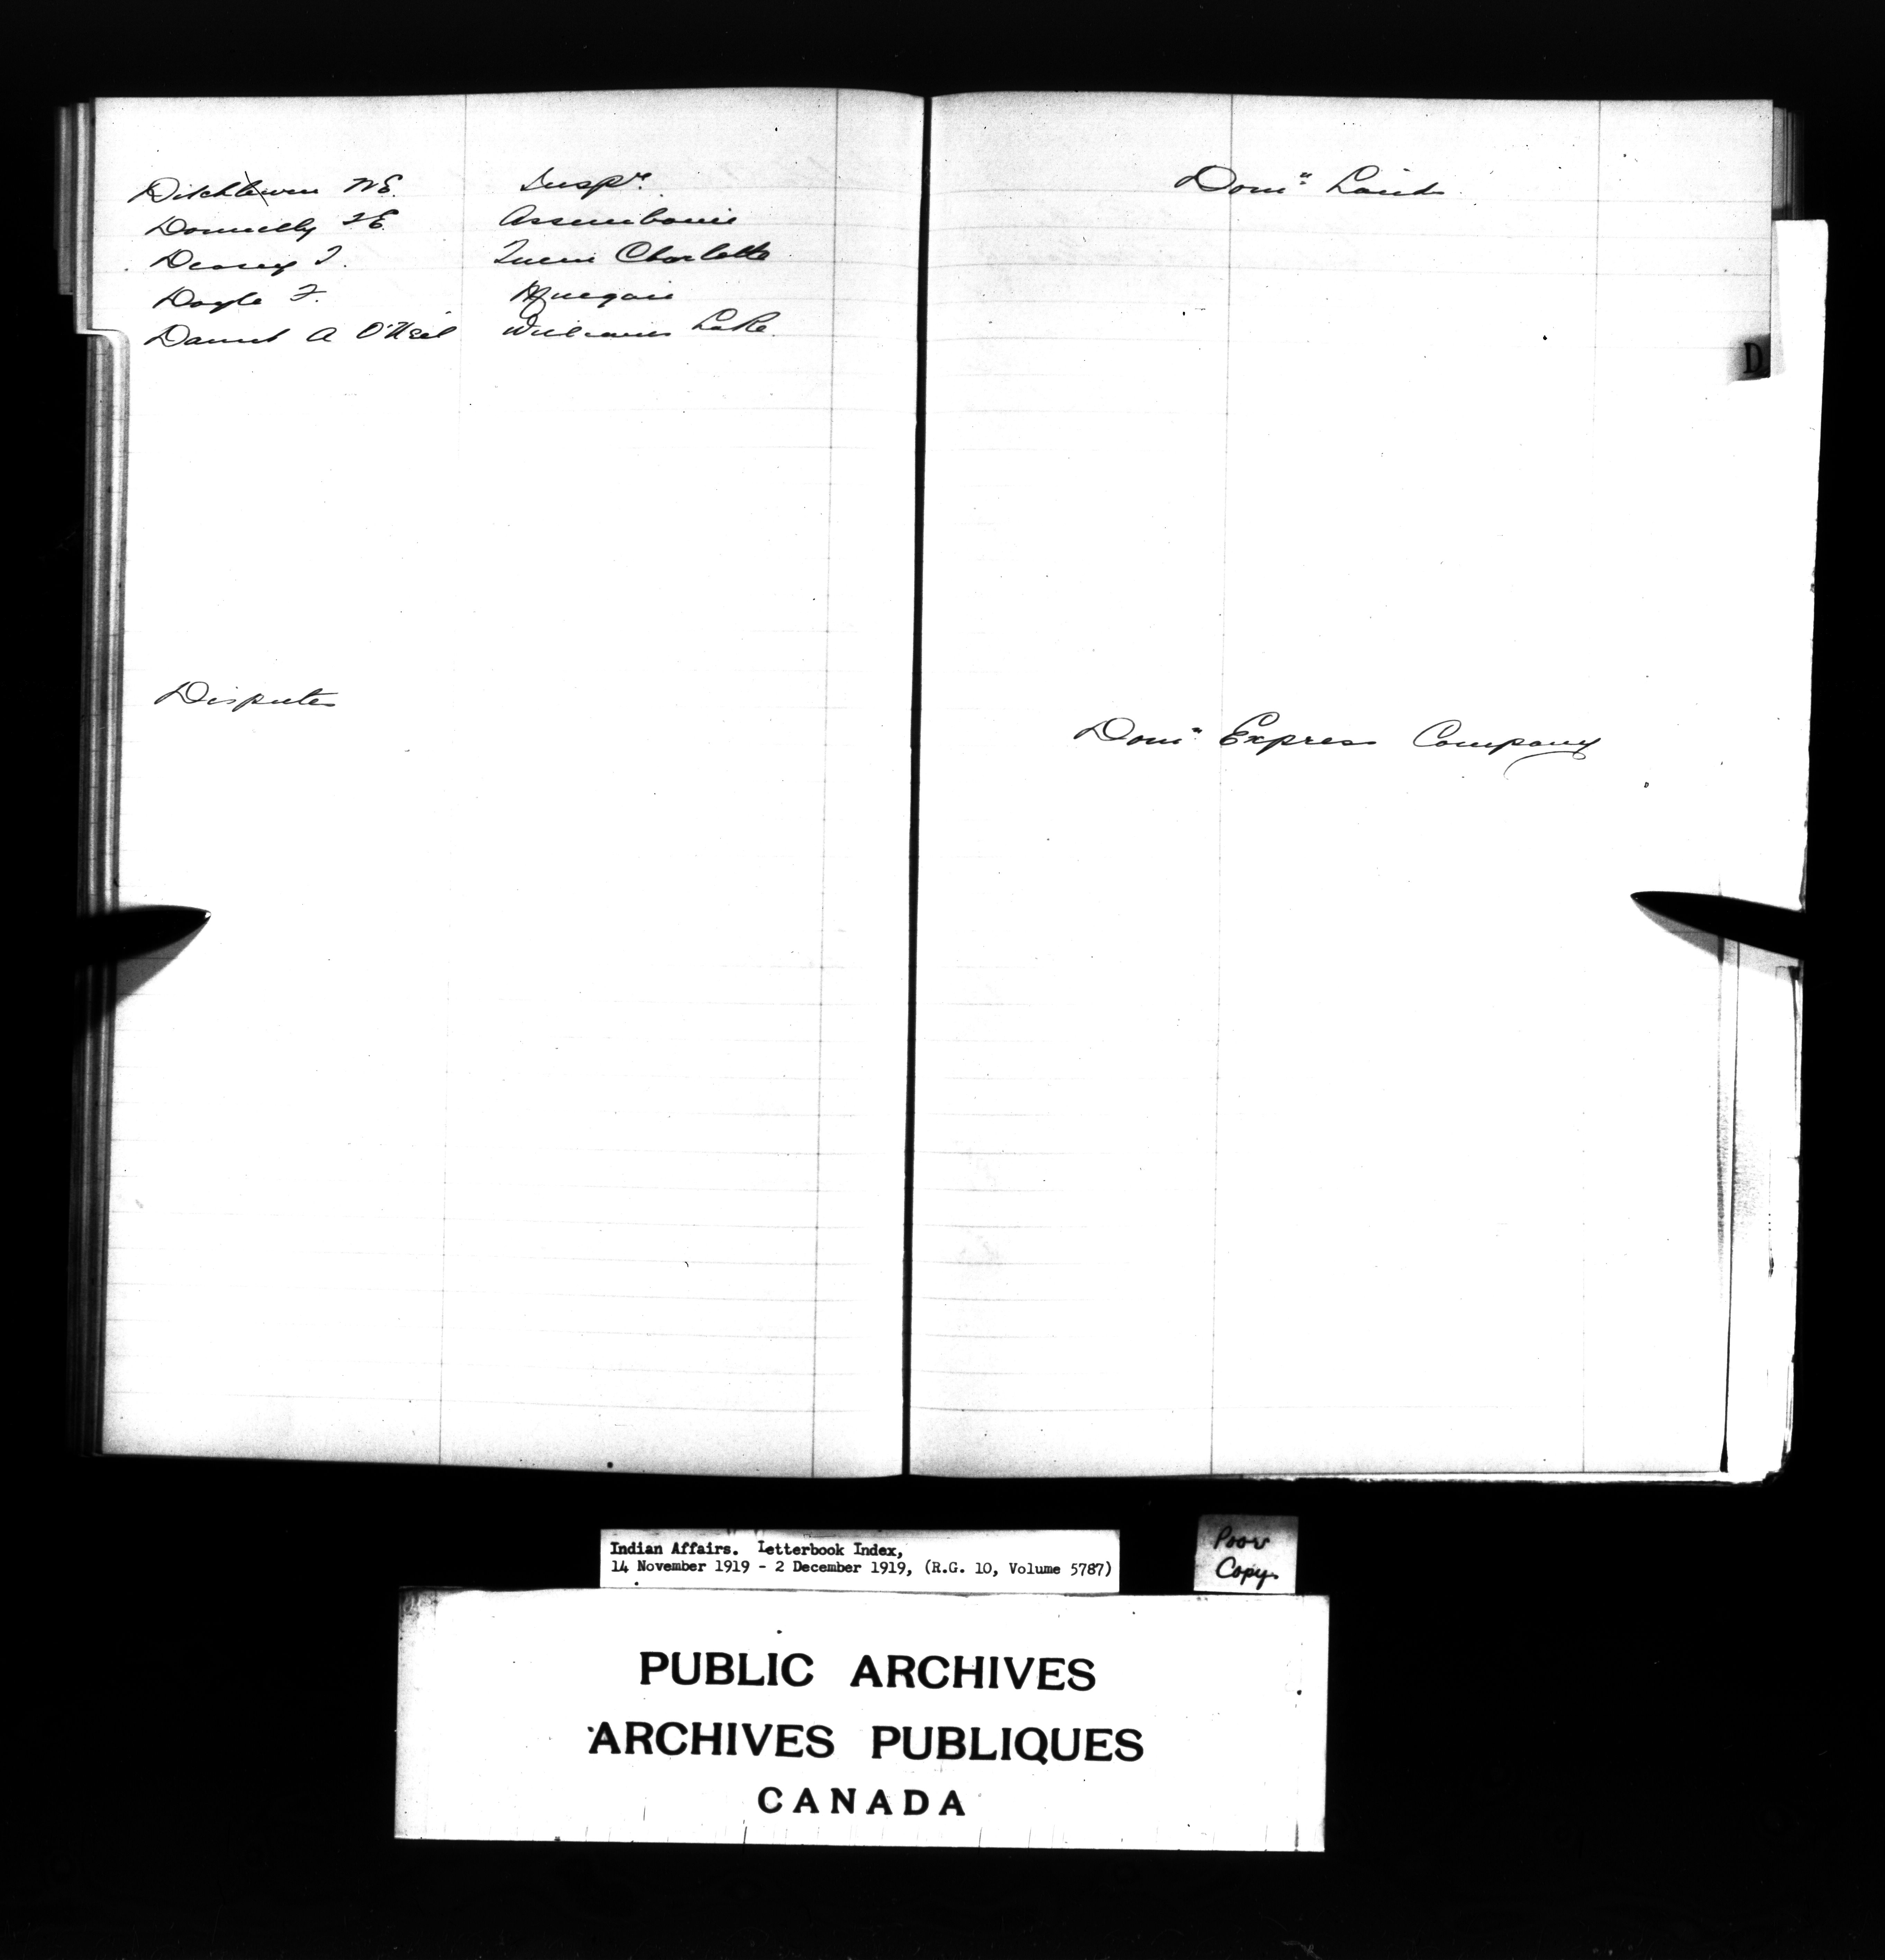 Ditchburn WE. Inspr.
Donnelly TE Assiniboine
Deasy T. Queen Charlotte
Doyle F.
Daniel A O'Neil Williams Lake
Disputes
Domn Lands
D
Domn Express Company
Indian Affairs. Letterbook Index,
14 November 1919 - 2 December 1919, (R.G. 10, Volume 5787)
Poor
Copy
PUBLIC ARCHIVES
ARCHIVES PUBLIQUES
CANADA